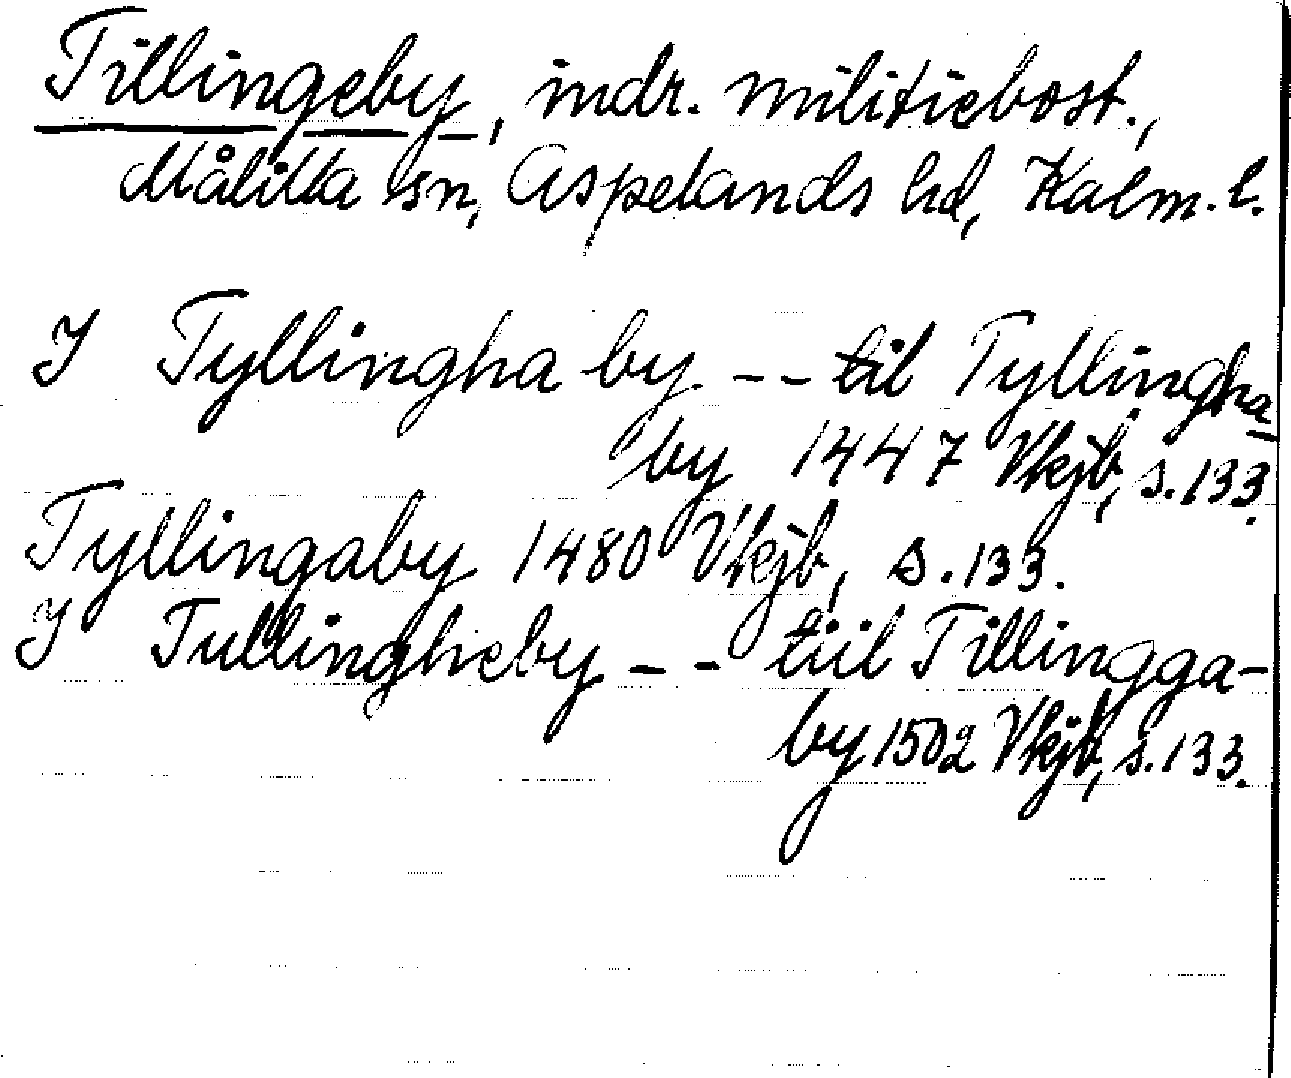 Tillingeby, indr. militiebost.,
Målilla sn, Aspelands hd, Kalm. l.
I Tyllingha by -- til Tyllingha
by 1447 Vkjb, s. 133.
Tyllingaby 1480 Vkjb, s. 133.
I Tullingheby -- tiil Tillingga-
by 1502 Vkjb, s. 133.